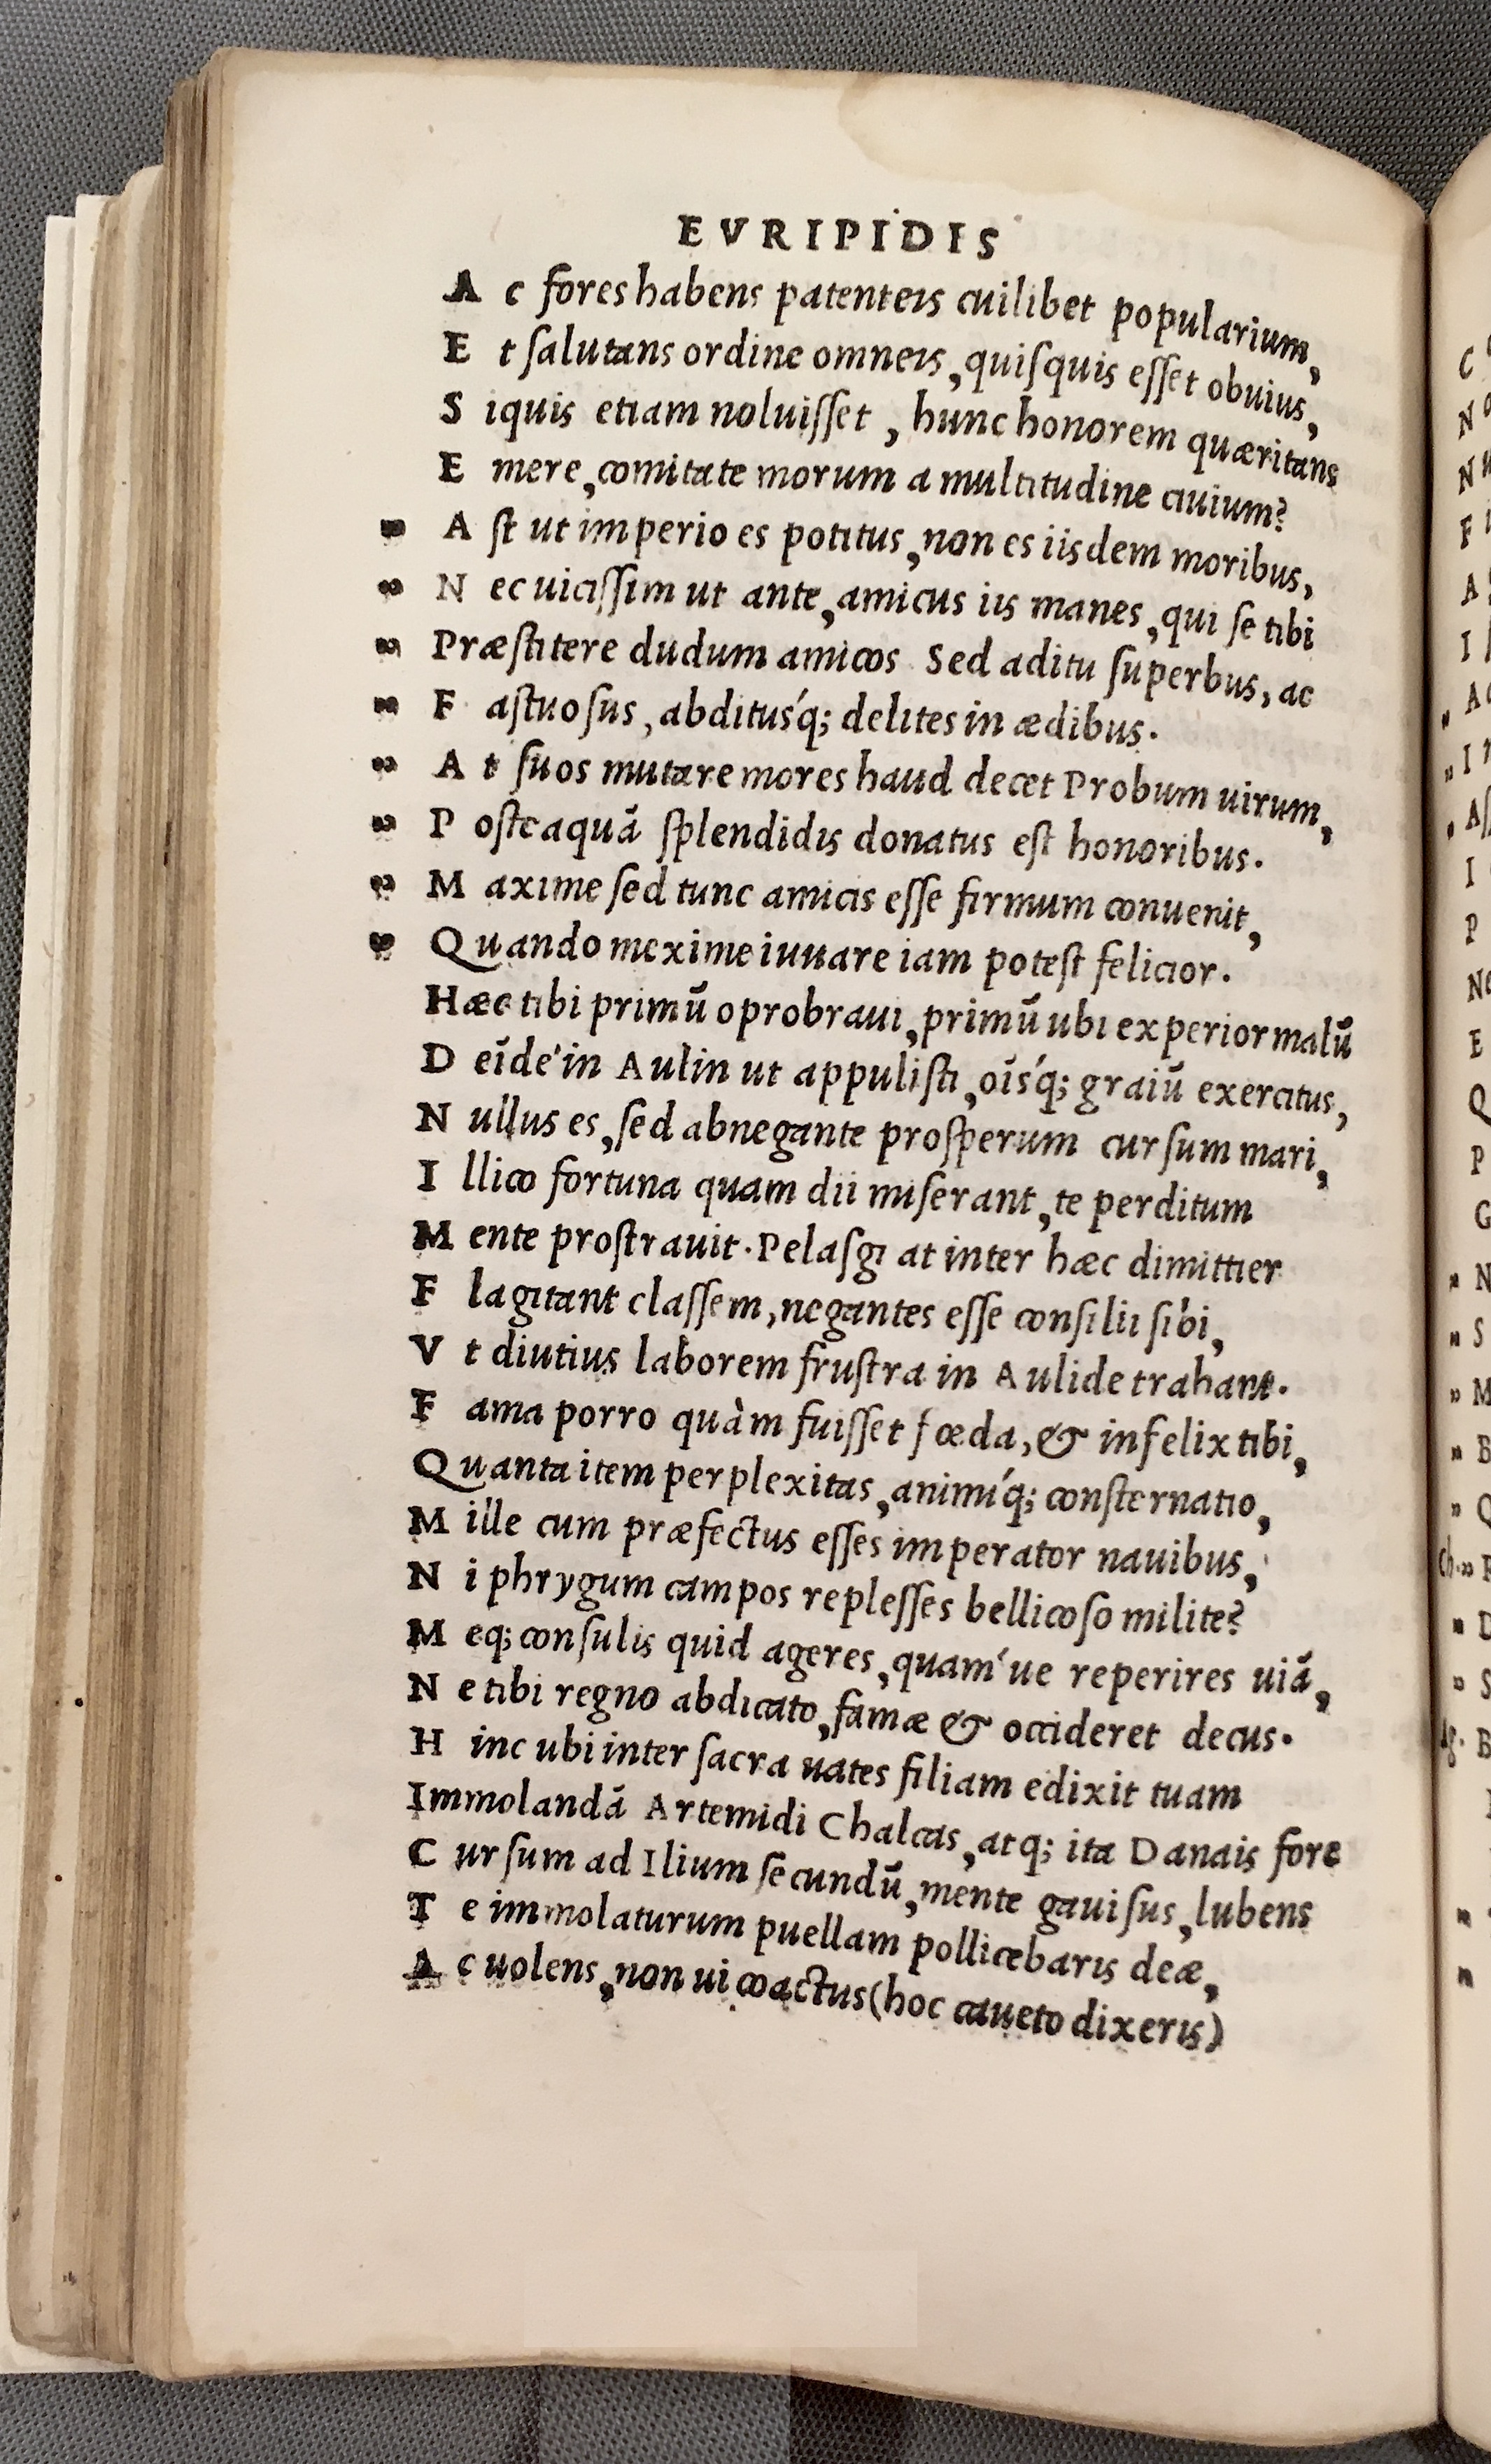 EVRIPIDIS
A c fores habens patenteis cuilibet popularium,
E t ſalutans ordine omneis, quiſquis eſſet obuius,
S iquis etiam noluiſſet, hunc honorem quæritans
E mere, comitate morum a multitudine ciuium?
" A ſt ut imperio es potitus, non es iisdem moribus,
" N ec uiciſſim ut ante, amicus iis manes, qui ſe tibi
" Præſtitere dudum amicos Sed aditu ſuperbus, ac
" F aſtuoſus, abdituśq; delites in ædibus.
" A t ſuos mutare mores haud decet Probum uirum,
" P oſteaquā ſplendidis donatus eſt honoribus.
" M axime ſed tunc amicis eſſe firmum conuenit,
" Quando mexime iuuare iam poteſt felicior.
Hæc tibi primū oprobraui, primū ubi experior malū
D eīde'in Aulin ut appuliſti, oīśq; graiū exercitus,
N ullus es, ſed abnegante proſperum curſum mari,
I llico fortuna quam dii miſerant, te perditum
M ente proſtrauit. Pelaſgi at inter hæc dimittier
F lagitant claſſem, negantes eſſe conſilii ſibi,
V t diutius laborem fruſtra in Aulide trahant.
F ama porro quàm fuiſſet fœda, & infelix tibi,
Quanta item perplexitas, animíq; conſternatio,
M ille cum præfectus eſſes imperator nauibus,
N i phrygum campos repleſſes bellicoſo milite?
M eq; conſulis quid ageres, quam'ue reperires uiā,
N e tibi regno abdicato, famæ & occideret decus.
H inc ubi inter ſacra uates filiam edixit tuam
Immolandā Artemidi Chalcas, atq; ita Danais fore
C urſum ad Ilium ſecundū, mente gauiſus, lubens
T e immolaturum puellam pollicebaris deæ,
A c uolens, non ui coactus (hoc caueto dixeris)